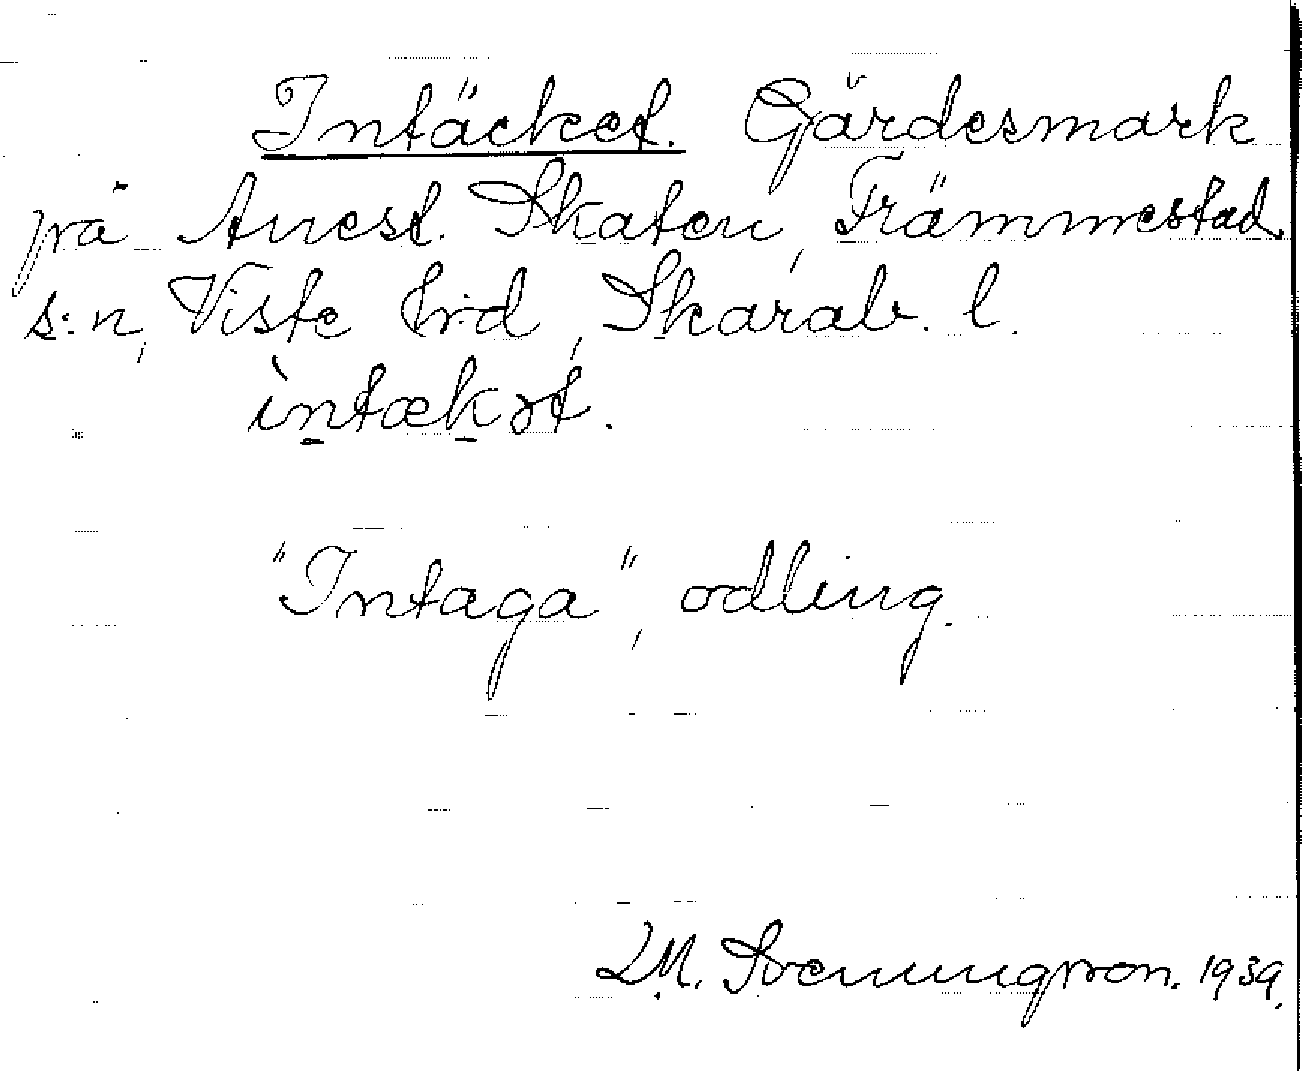 Intäcket. Gärdesmark
på Anest. Skaten, Främmestad
s:n, Viste hd, Skarab. l.
ìntækət.
"Intaga", odling.
L.M. Svenungsson. 1939.